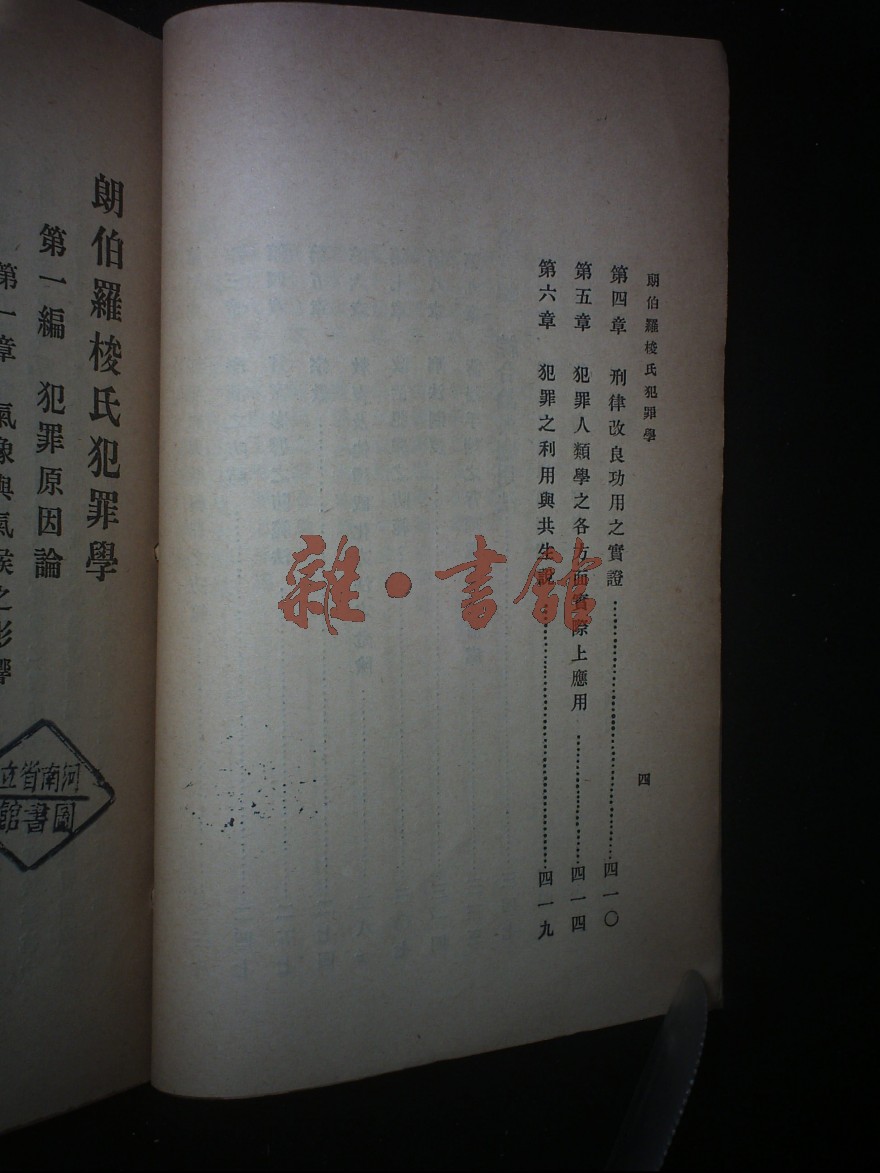 朗伯羅梭氏犯罪學
第四章 刑律改良功用之實證………四一〇
第五章 犯罪人類學之各方面實際上應用………四一四
第六章 犯罪之利用與共生說………四一九
四
朗伯羅梭氏犯罪學
第一編 犯罪原因論
第一章 氣象與氣候之影響
河南省立
圖書館
雜·書館